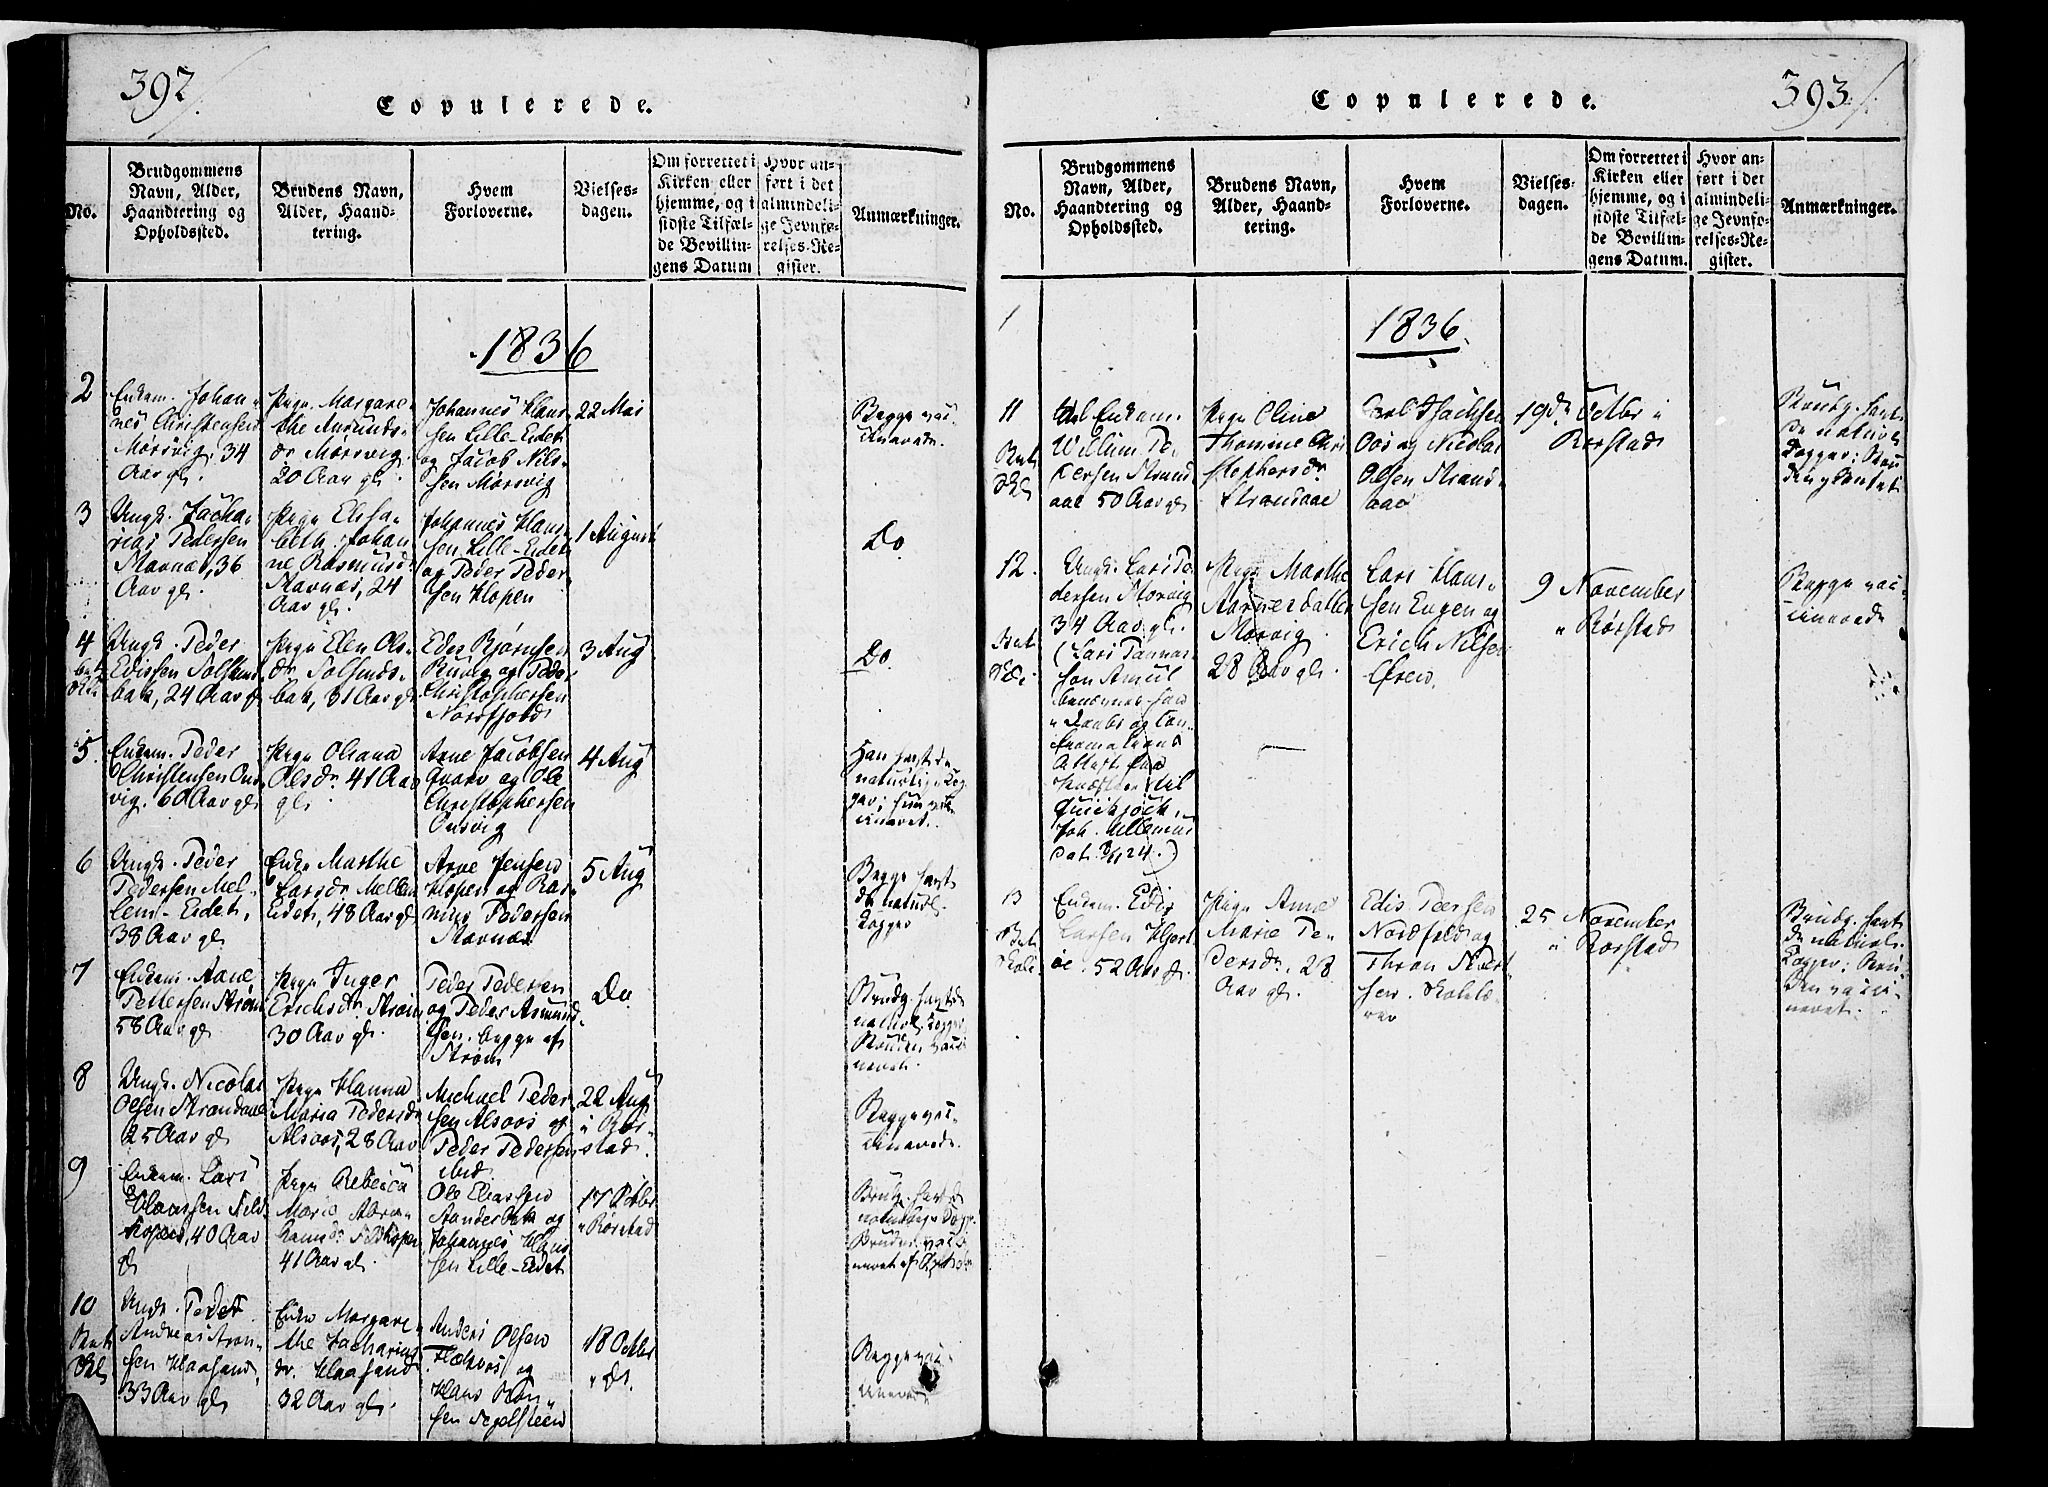 392/.
Copulerede.
No.
Brudgommens
Navn, Alder,
Haandtering og
Opholdssted.
Brudens Navn,
Alder, Haand-
tering.
Hvem
Forloverne.
Vielses-
dagen.
Om forrettet i
Kirken eller
hjemme, og i
sidste Tilfæl-
de Bevillin-
gens Datum
Hvor an-
ført i det
almindeli-
ge Jevnfø-
relses-Re-
gister.
Anmærkninger.
1836
2
Enkem. Johan-
nes Christensen
Mørsvig, 34
Aar gl.
Pige Margare-
the Amunds-
dr Mørsvig
20 Aar gl.
Johannes Hans-
sen Lille-Eidet
og Jacob Nils-
sen Mørsvig
22 Mai
Begge vac-
cinerede.
3
Ungk. Zacha-
rias Pedersen
Mavnæs, 36
Aar gl.
Pige Elisa-
beth Johan-
ne Rasmusd:
Mavnæs, 24
Aar gl.
Johannes Hans-
sen Lille-Eidet
og Peder Peder-
sen Hopen
1 August
Do
4
Ungk. Peder
Edissen
bak, 24 Aar gl
Pige Elen Ols-
dr
bak, 31 Aar gl
Edis Bjørnsen
og Peder
Christophersen
Nordfjord
3 Aug
Do.
5
Enkem. Peder
Christensen
vig, 60 Aar gl
Pige Oliana
Olsdr 41 Aar
gl.
Arne Jacobsen
Qvarv og Ole
Christophersen
4 Aug
Han havt de
naturlige Kop-
per; hun vac-
cineret.
6
Ungk. Peder
Pedersen Mel-
lem-Eidet,
38 Aar gl
Enke Marthe
Larsdr Mellem
Eidet, 48 Aar gl
Arne Jensen
Hopen og Ras-
mus Pedersen
Mavnæs
5 Aug
Begge havt
de naturl.
Kopper
7
Enkem. Arne
Pettersen Strøm
58 Aar gl
Pige Inger
Erichsdr Strøm
30 Aar gl.
Peder Pedersen
og Peder Asmund-
sen, begge af
Strøm
Do
Brudg. havt de
naturl. Kopper
Bruden vacci-
neret.
8
Ungk. Nicolai
Olsen Strandaae
25 Aar gl
Pige Hanna
Maria Pedersdr
Alsoos, 28 Aar
Michael Peder-
sen Alsoos og
Peder Pedersen
ibid
22 Aug
i Rør-
stad.
Begge vac-
cinerede.
9
Enkem. Lars
Hanssen Feld-
hopen, 40 Aar
gl
Pige Rebecca
Marie Abra-
hamsdr Feldhopen
41 Aar gl.
Ole Eliassen
Sanderbak og
Johannes Hans-
sen Lille-Eidet
17 Octbr
i Rørstad
Brudg. havt de
naturlige Kopper
Bruden vacci-
neret af
10
Ungk. Peder
Andreas Aron-
sen Haasand,
33 Aar gl
Enke Margare-
the Zacharias
dr. Haasand
32 Aar gl.
Anders Olsen
og
Hans Aron-
sen Segelsteen
18 Octbr
Begge vac-
cinerede
393/.
Copulerede.
No.
Brudgommens
Navn, Alder,
Haandtering og
Opholdssted.
Brudens Navn,
Alder, Haand-
tering.
Hvem
Forloverne.
Vielses-
dagen.
Om forrettet i
Kirken eller
hjemme, og i
sidste Tilfæl-
de Bevillin-
gens Datum.
Hvor an-
ført i det
almindeli-
ge Jevnfø-
relses-Re-
gister.
Anmærkninger.
1
1836.
11
Enkem.
Willum Pe-
dersen Strand-
aae 50 Aar gl
Pige Oline
Thomine Chri-
stophersdr
Strandaae
Isachsen
Oos og Nicolai
Olsen Strand-
aae
19de Octbr i
Rørstad
Brudg. havt
de naturl.
Kopper; Bru-
den
12.
Ungk. Lars Pe-
dersen Mørvig
34 Aar gl.
(Lars
til
Quickjock,
24.)
Pige Marthe
Mørvig
28 Aar gl.
Lars Hans-
sen Engen og
Erich Nilsen
Øren.
9 November
i Rørstad
Begge vac-
cinerede
13
Enkem. Edis
Larsen Hjert-
øe, 52 Aar gl.
Pige Anne
Marie Pe-
dersdr. 28
Aar gl.
Edis Pedersen
Nordfold og
25 November
i Rørstad
Brudg. havt
de naturl.
Kopper; Bru-
den vacci-
neret.